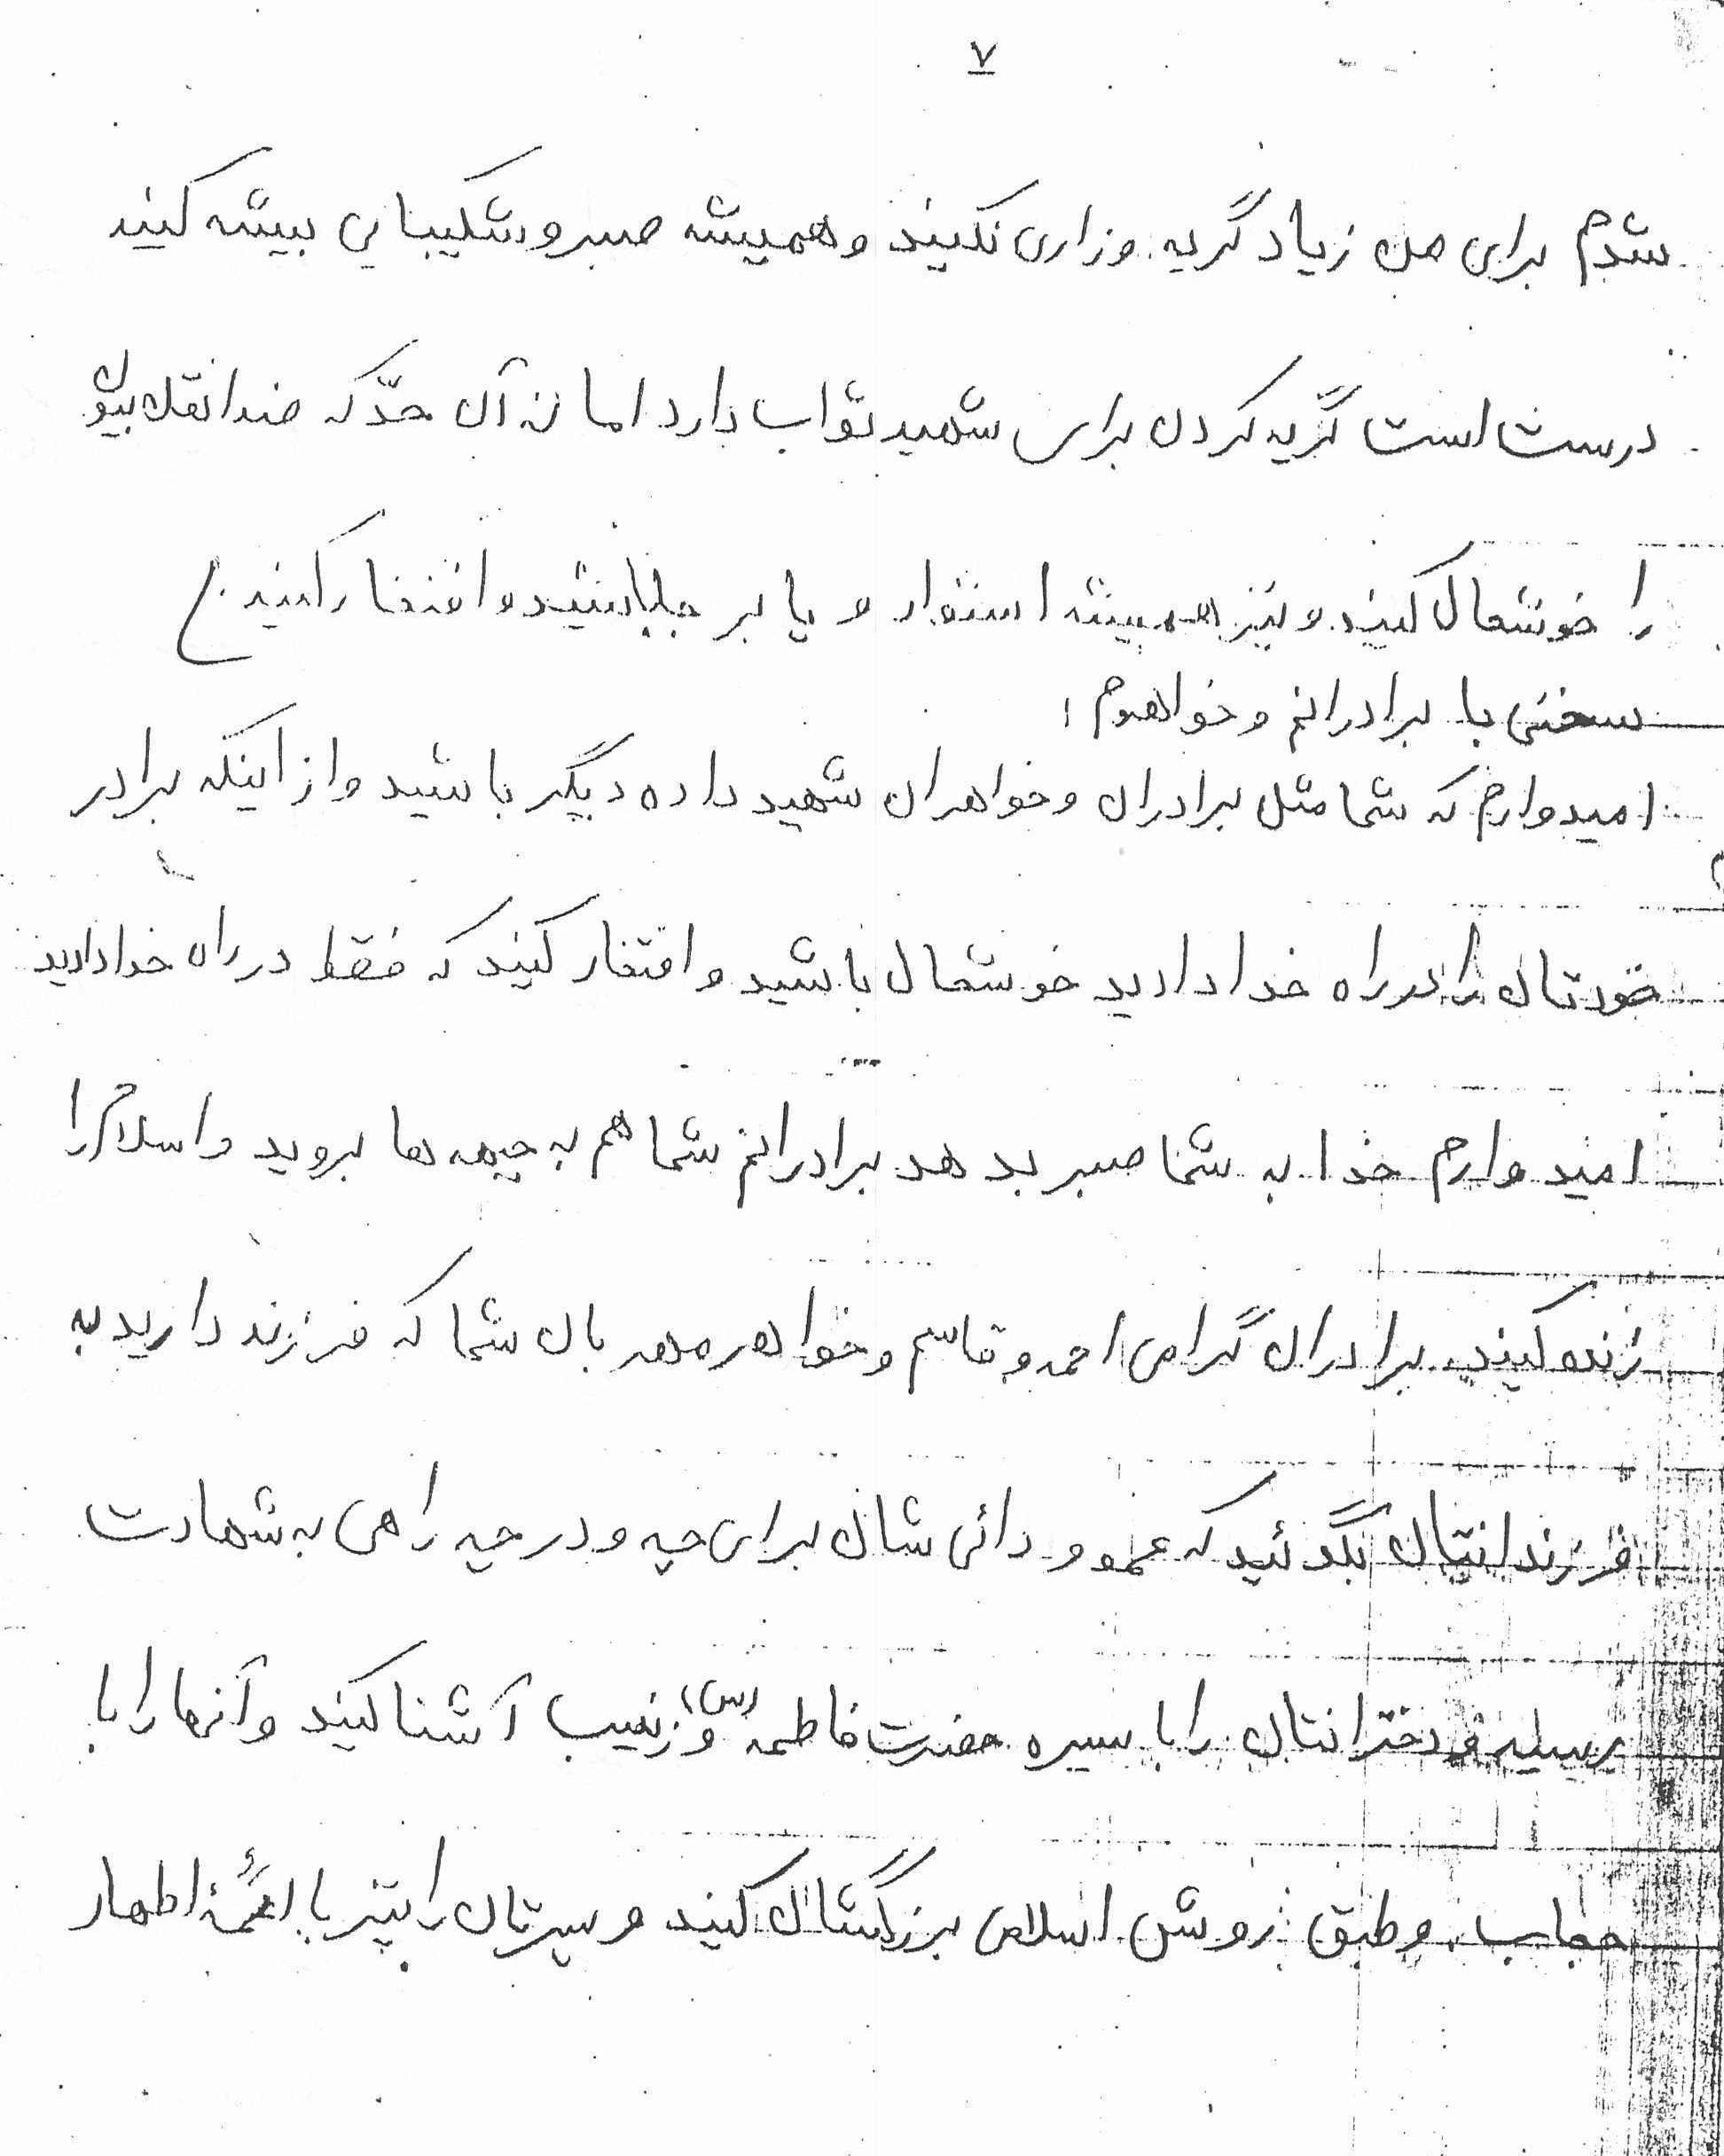 ۷
شدم برای من زیاد گریه وزاری نکنید و همیشه صبر و شکیبایی پیشه کنید
درست است گریه کردن برای شهید ثواب دارد اما نه آن حدّ که ضد انقلابیون
را خوشحال کنید و نیز همیشه استوار و پا بر جا باشید و افتخار کنید.
سخنی با برادرانم و خواهرم:
امیدوارم که شما مثل برادران و خواهران شهید داده دیگر باشید و از اینکه برادر
خودتان را در راه خدا دادید خوشحال باشید و افتخار کنید که فقط در راه خدا دادید
امیدوارم خدا به شما صبر بدهد برادرانم شما هم به جبهه ها بروید و اسلام را
زنده کنید. برادران گرامی احمد و قاسم و خواهر مهربان شما که فرزند دارید به
فرزندانتان بگوئید که عمو و دائی شان برای چه و در چه راهی به شهادت
رسیده و دخترانتان را با سیره حضرت فاطمه (س) و زینب آشنا کنید و آنها را با
حجاب و طبق روش اسلامی بزرگشان کنید و پسرتان را نیز با ائمّهٔ اطهار